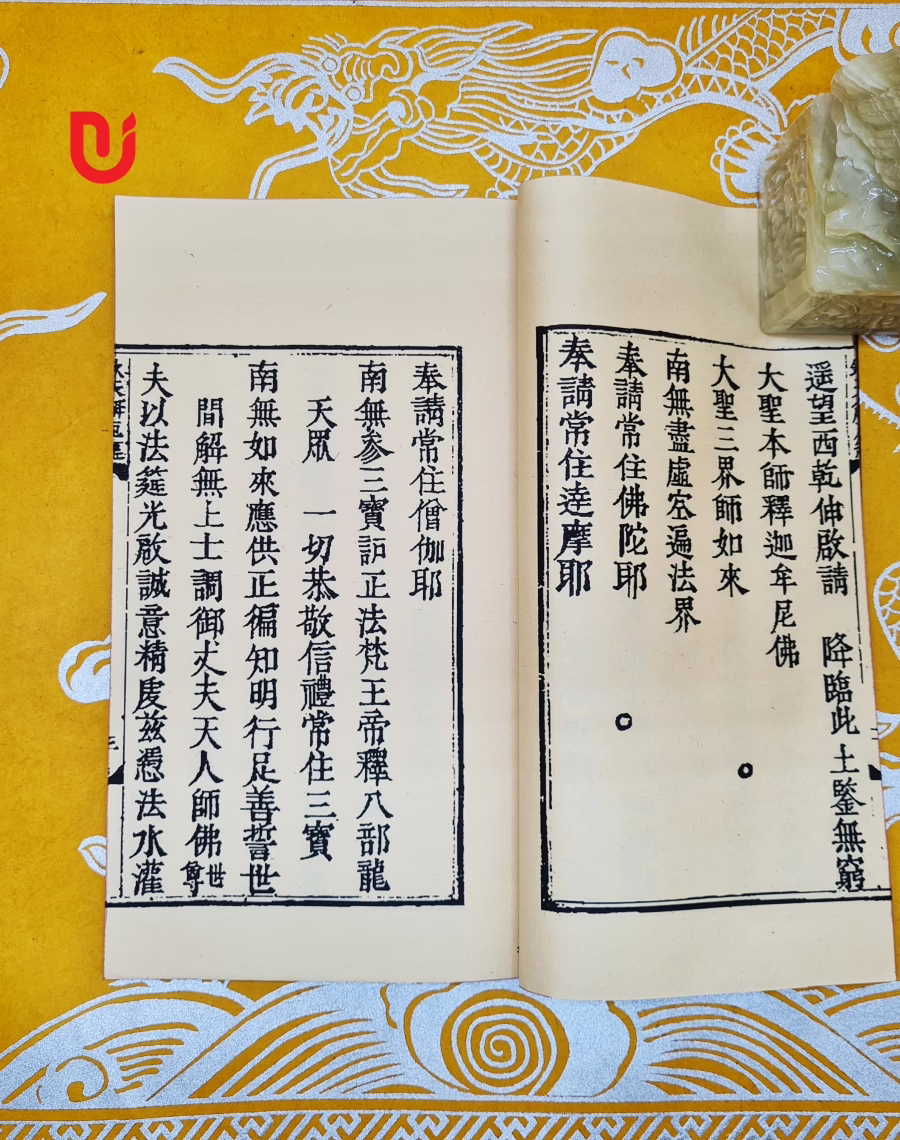 遥望西乾伸啟請　降臨此土鑒無窮
大聖本師釋迦牟尼佛
大聖三界師如來
南無盡虛空遍法界
奉請常住佛陀耶
奉請常住達摩耶
奉請常住僧伽耶
南無參三寶証正法梵王帝釋八部龍
天眾　一切恭敬信禮常住三寶
南無如來應供正徧知明行足善誓世
間解無上士調御丈夫天人師佛世尊
夫以法筵光啟誠意精虔兹憑法水灌